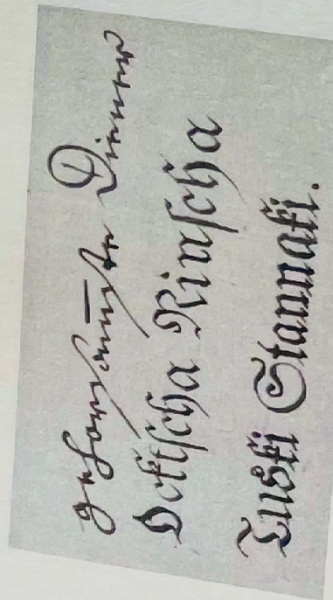 gehorsamster Diener
Doktscha Rinscha
Tuski Stannaki.